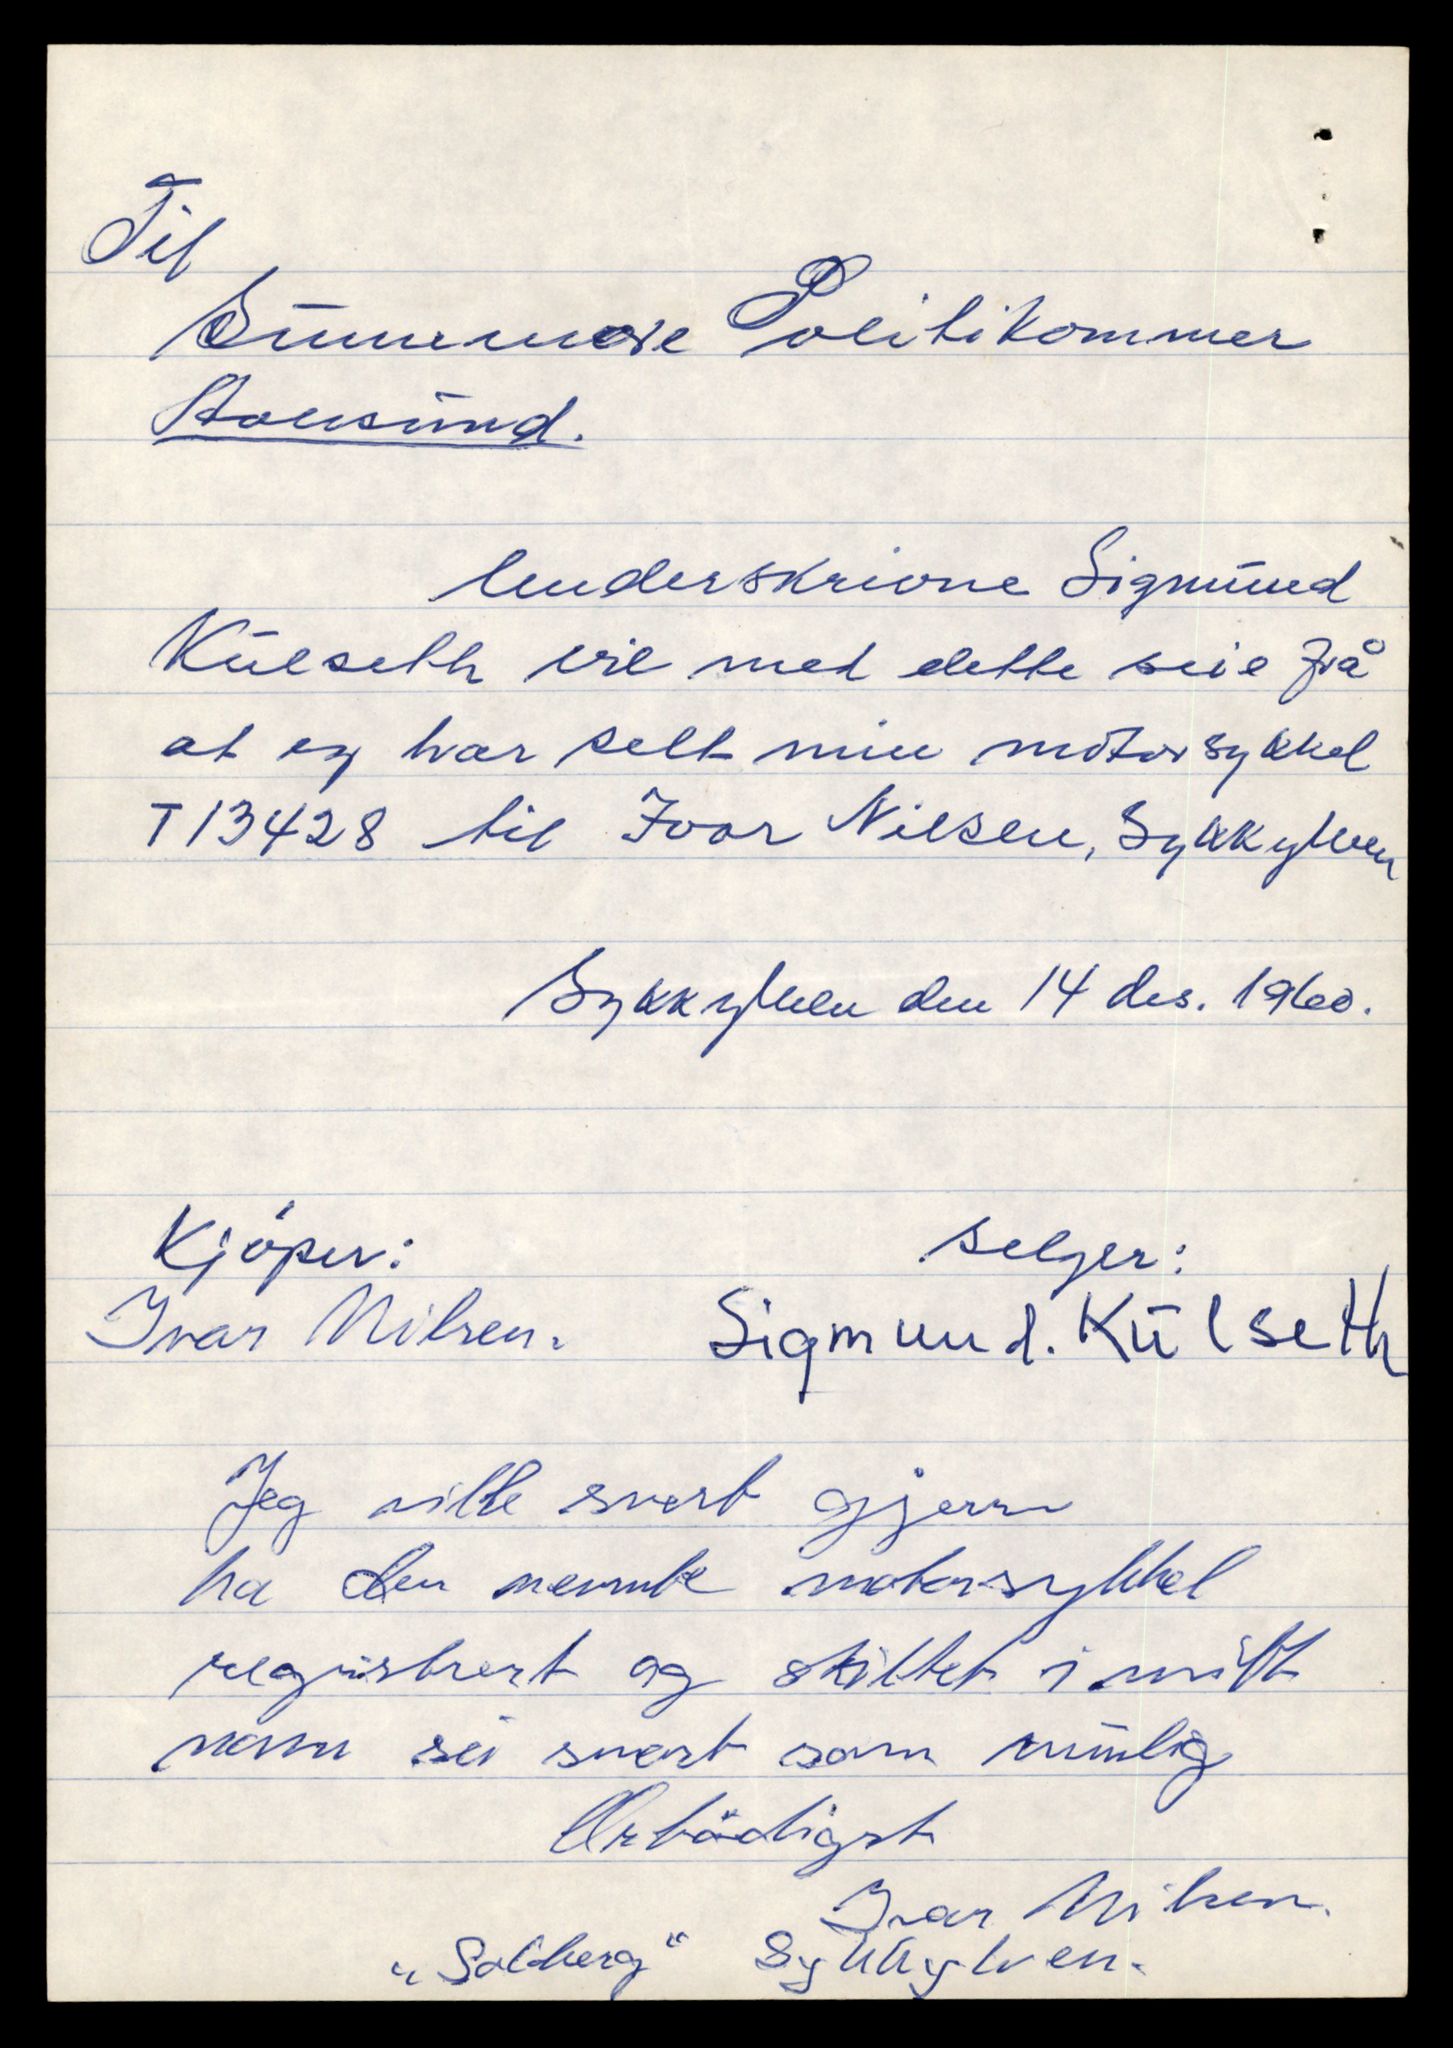 Til
Sunnmøre Politikammer
Aalesund.
Underskrivne Sigmund
Kulseth vil med dette seie frå
at eg har selt min motorsykkel
T 13428 til Ivar Nilsen, Sykkylven
Sykkylven den 14 des. 1960.
Kjøper: selger:
Ivar Nilsen. Sigmund. Kulseth
Jeg ville svert gjerne
ha den nevnte motorsykkel
registrert og skiltet i mitt
navn så snart som mulig
Ærbødigst
Ivar Nilsen.
„Solberg" Sykkylven.